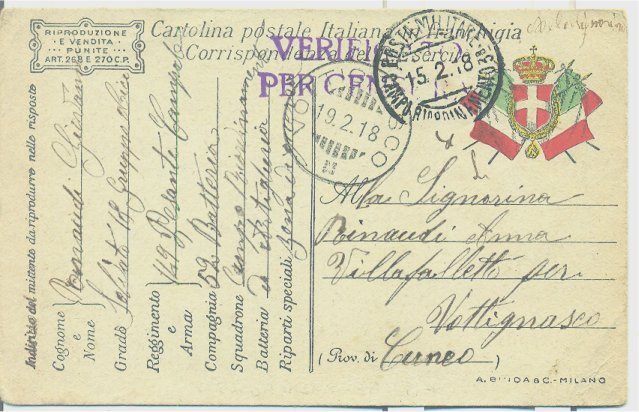 RIPRODUZIONE
E VENDITA
PUNITE
ART. 268 E 270 C.P.
Cartolina postale Italiana in Franchigia
Corrispondenza del R. Esercito
VERIFICATO
PER CENSURA
POSTA MILITARE
15.2.18
19.2.18
Indirizzo del mittente da riprodurre nella risposta
Cognome
e
Nome
Grado Soldato
Reggimento 49
e
Arma
Compagnia 52 Batteria
Squadrone Campo
Batteria
Riparti speciali Zona di guerra
Alla Signorina
Rinaudi Anna
Villafalletto per
Vottignasco
(Prov. di Cuneo )
MILANO